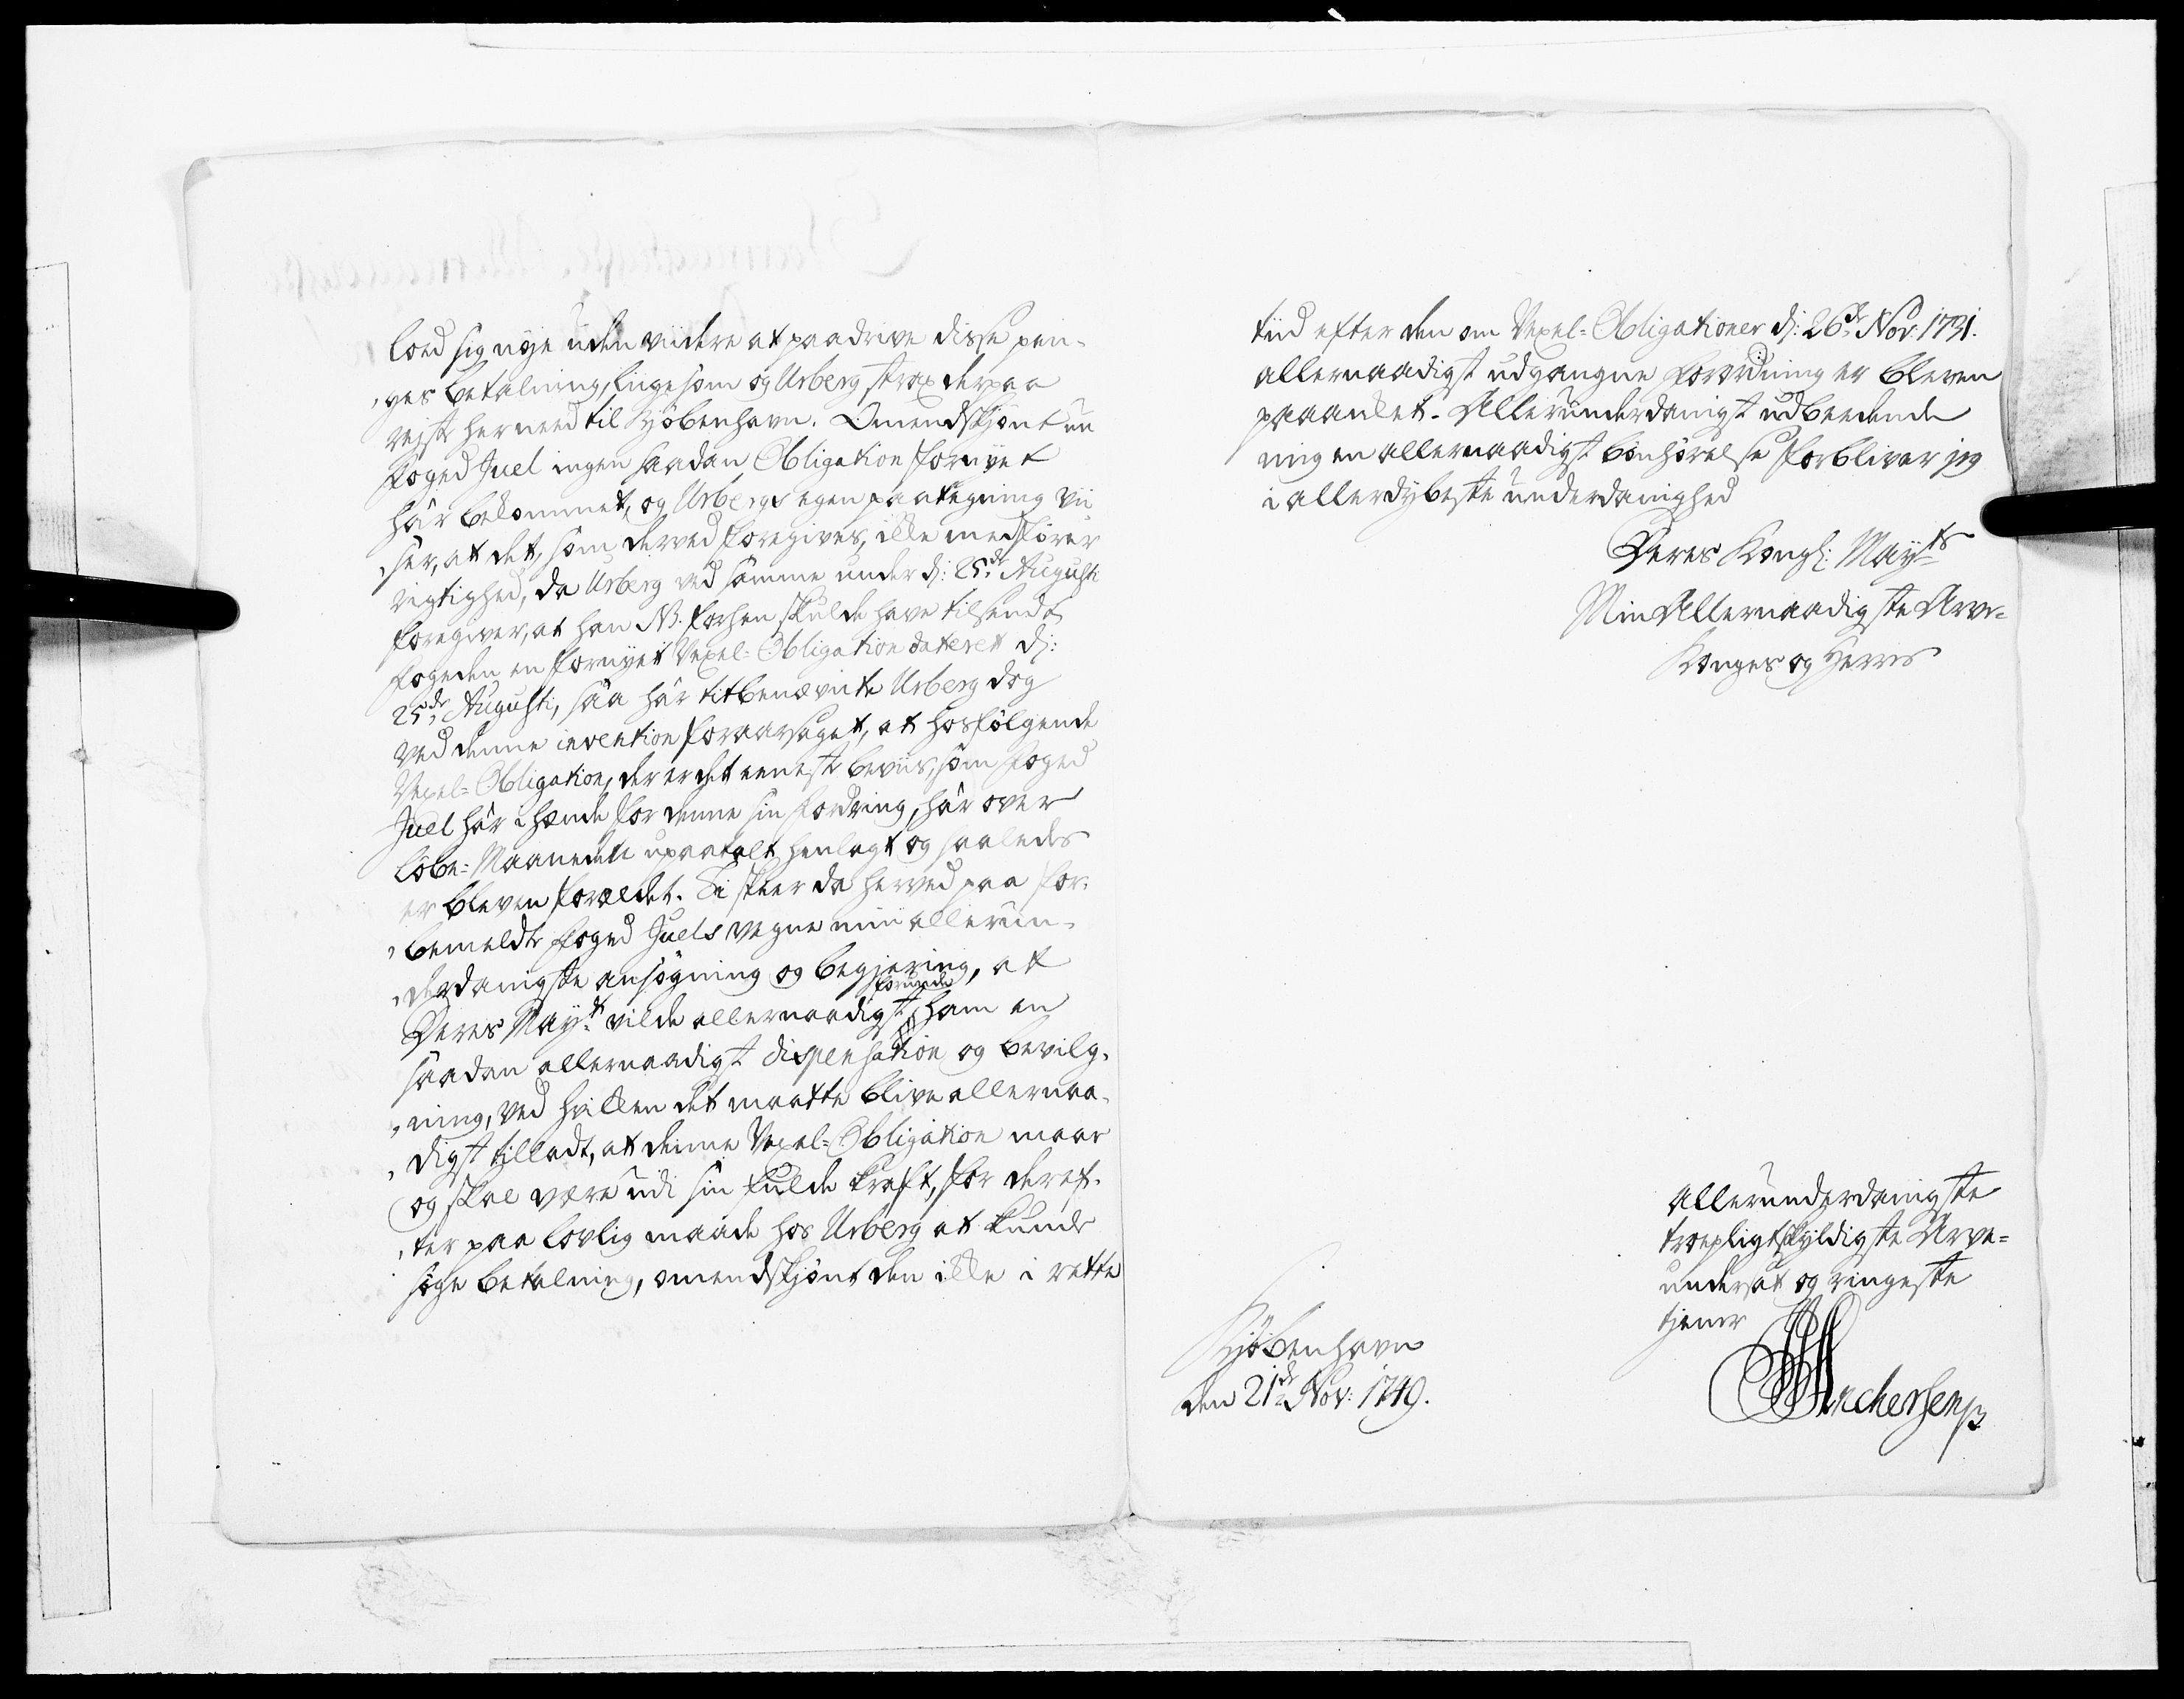 loed sig nøje uden viidere at paadrive disse pen-
ges betalning, ligesom og Urberg strax derpaa
reiste herneed til Kjøbenhavn. Omendskjønt nu
foged Juel ingen saadan Obligation fornyet
har bekommet, og Urbergs egen paategning vii
ser, at det, som derved foregives, ikke medfører
rigtighed, da Urberg ved samme under d: 25de Augusti
foregiver, at han NB. forhen skulde have tilsendt
fogeden en fornyet Vexel-Obligation dateret d:
25de Augusti, saa har titbenævnte Urberg dog
ved denne invention foraarsaget, at hosfølgende
Vexel-Obligation, der er det eeneste beviis, som foged
Juel har i hænde for denne sin fordring, har over
løbe-Maaneden upaatalt henlagt og saaledes
er bleven forældet. Di skeer da herved paa for-
bemeldte foged Juels vegne min allerun-
derdanigste ansøgning og begjæring, at
Deres Mayt: vilde allernaadigst forunde ham en
saadan allernaadigst dispensation og bevilg-
ning, ved hvilken det maatte blive allernaa-
digst tilladt, at denne Vexel-Obligation maae
og skal være udi sin fulde kraft, for deref-
ter paa lovlig maade hos Urberg at kunde
søge betalning, omendskjønt den ikke i rette
tiid efter den om Vexel-Obligationer d: 26de Nov: 1731.
allernaadigst udgangne forordning er bleven
paaanket. Allerunderdanigst udbeedende
mig en allernaadigst bønhørelse forbliver jeg
i allerdybeste underdanighed
Deres Kongl: Mayts
Min Allernaadigste Arve-
Konges og Herres
allerunderdanigste
troepligtskyldigste Arve-
undersat og ringeste
tjener
Kjøbenhavn
den 21de Nov: 1749.